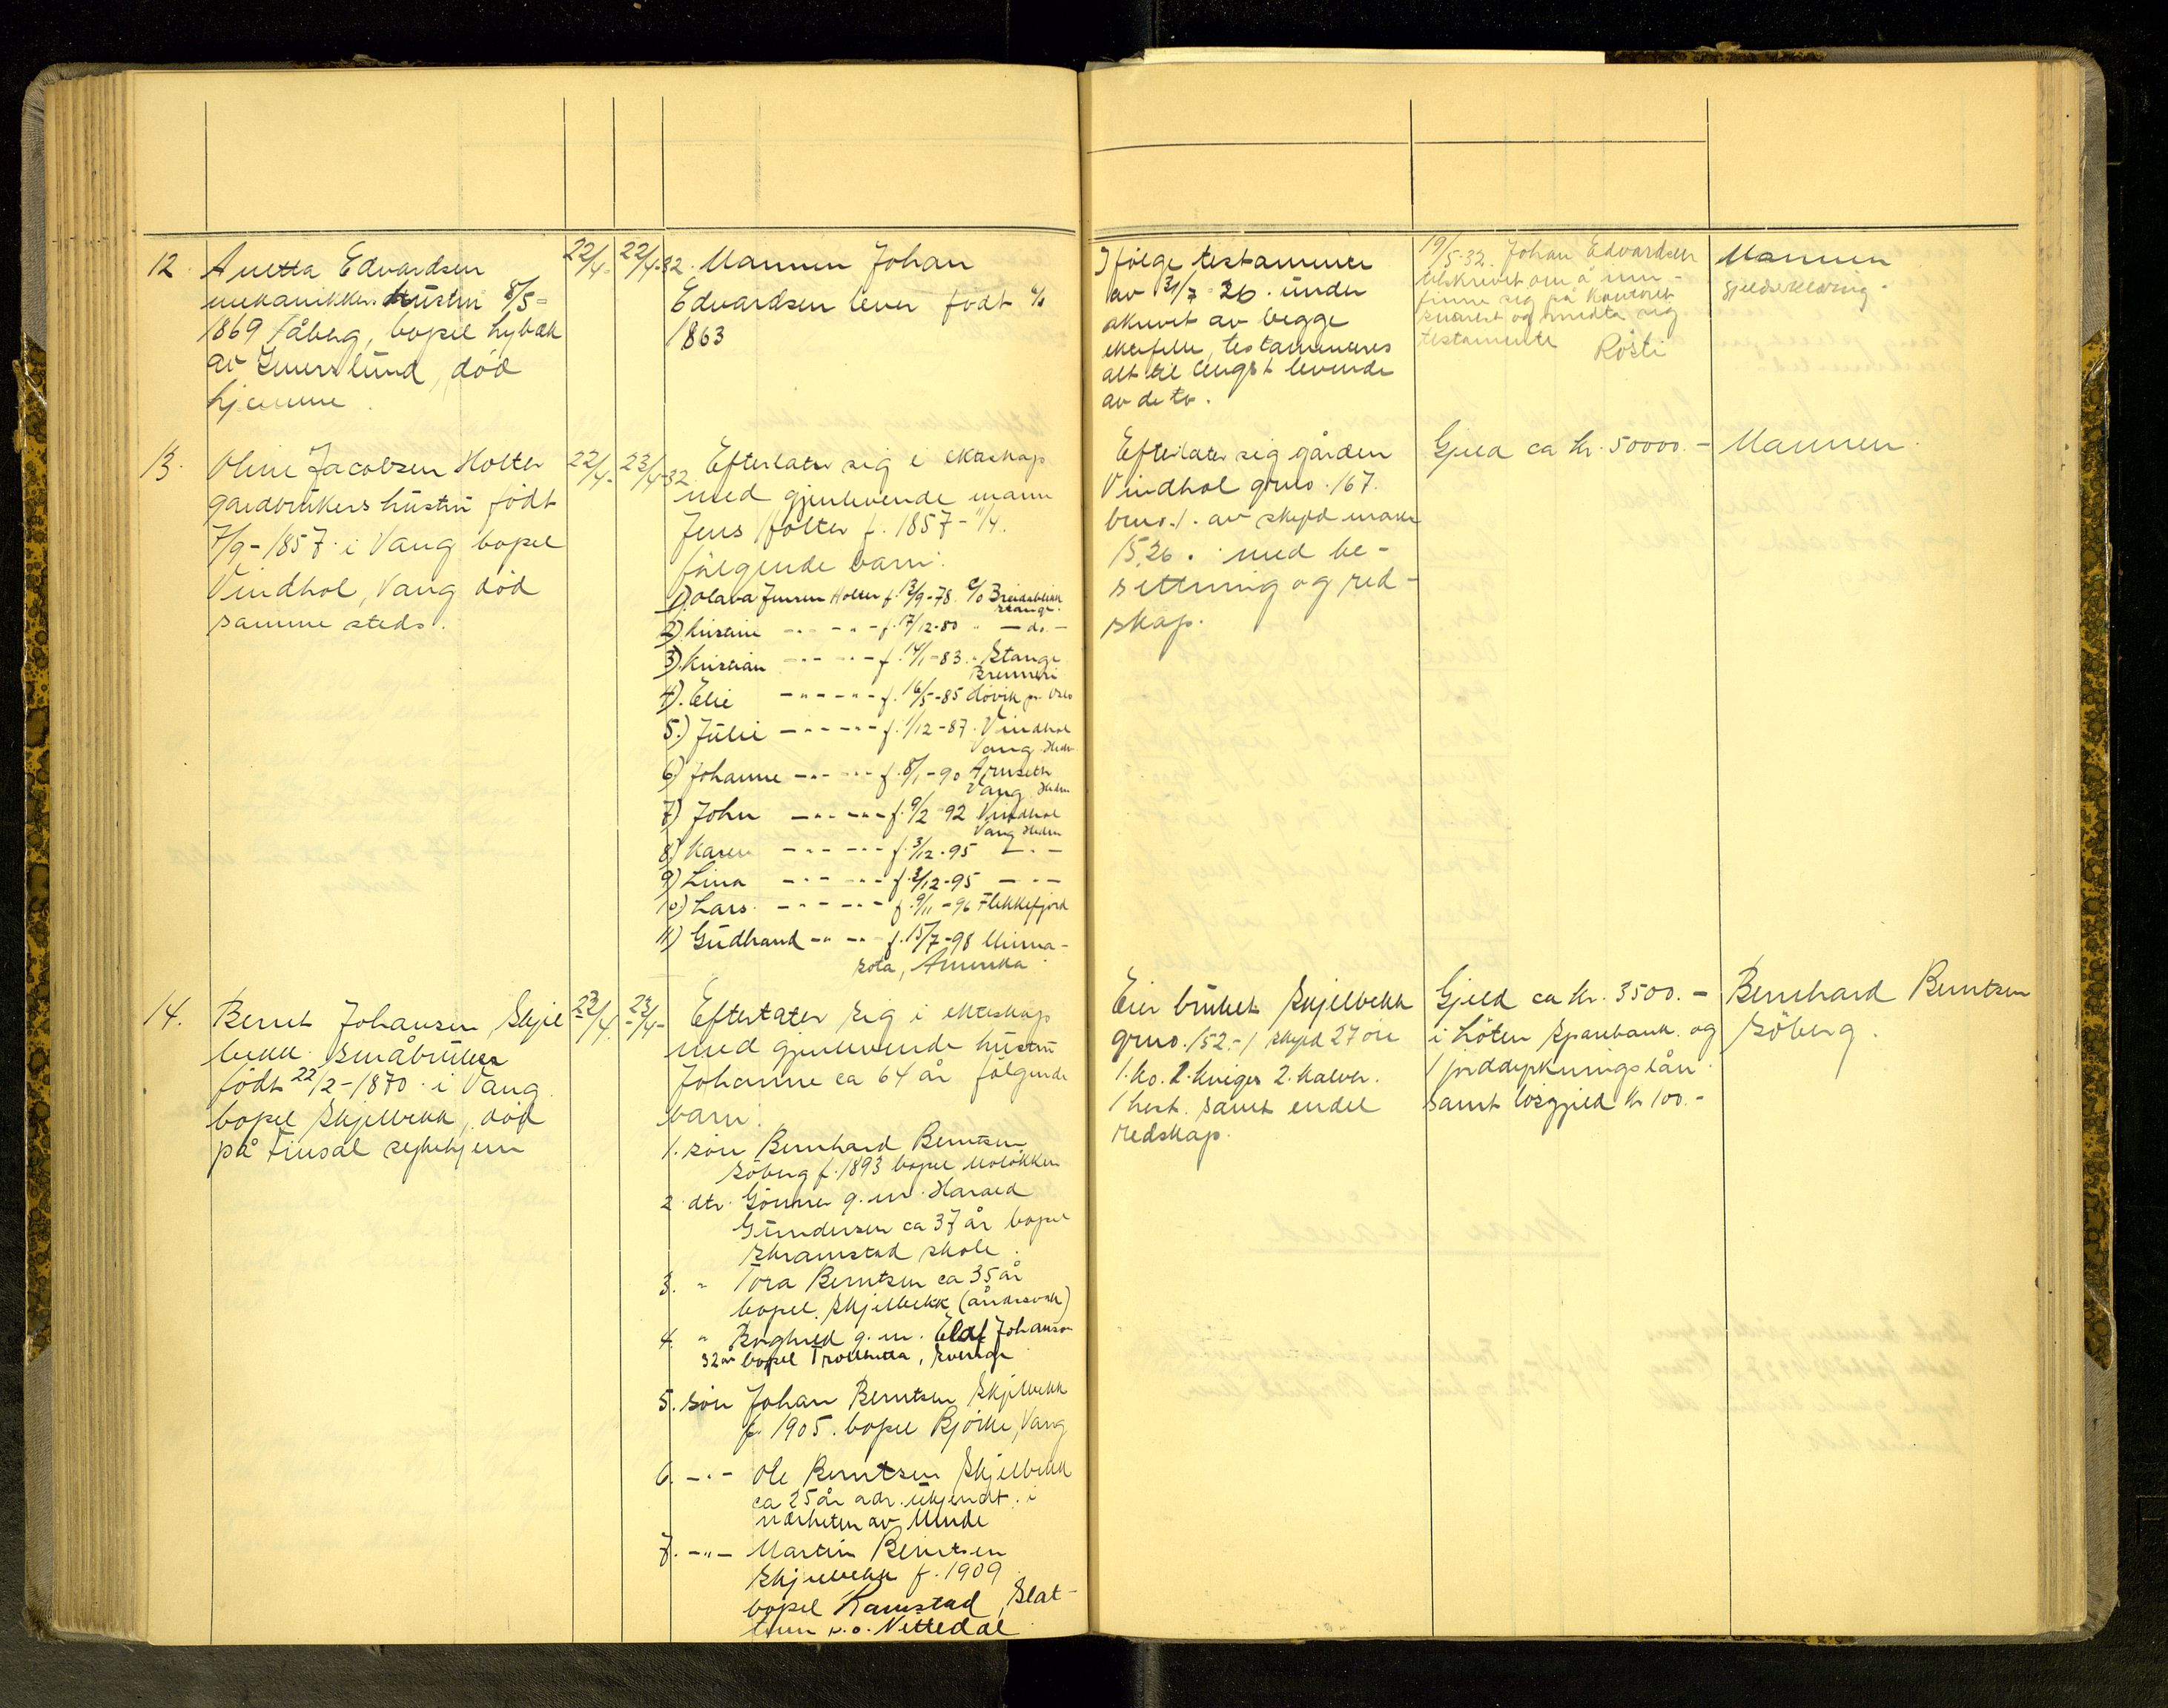 12.
Anetta Edvardsen
mekanikker hustru 8/5-
1869 Fåberg, bopel Lybæk
av Imerslund, død
hjemme.
22/4-
22/4-32.
Mannen Johan
Edvardsen lever født
1863
Ifølge testamente
av 31/7 26. under
skrevet av begge
ektefeller, testamenteres
alt til lengst levende
av de to.
19/5-32. Johan Edvardsen
tilskrevet om å inn-
finne sig på kontoret
snarest og medta sig
testamente
Rosti
Mannen
gjeldserklæring.
13.
Oline Jacobsen Holter
gardbrukers hustru født
7/9-1857 i Vang bopel
Vindhol, Vang død
samme steds.
22/4-
23/4-32
Efterlater sig i ekteskap
med gjenlevende mann
Jens Holter f. 1857-11/4.
følgende barn:
1) Olava Jensen Holter f. 13/9-78. c/o Breidablikk
Stange.
2) Kristine -"- -"- f. 17/12-80 " -do.-
3) Kristian -"- -"- f. 14/1-83. Stange
Brenneri
4). Elie -"- -"- f. 16/5-85 Høvik pr. Oslo
5.) Julie -"- -"- f. 1/12-87. Vindhol
Vang Hedm
6) Johanne -"- -"- f. 8/1-90 Arnseth
Vang Hedm
7) John -"- -"- f. 9/2 92 Vindhol
Vang Hedm
8) Karen -"- -"- f. 3/12-95 -"-
9) Lina -"- -"- f. 3/12-95 -"-
10) Lars. -"- -"- f. 9/11-96 Flekkefjord
11) Gudbrand -"- -"- f. 15/7-98 Minna-
sota, Amerika.
Efterlater sig gården
Vindhol grno. 167.
brno. 1. av skyld mark
15,26. med be-
setning og red-
skap.
Gjeld ca kr. 50000.-
Mannen.
14.
Bernt Johansen Skjel
bekk småbruker
født 22/2-1870 i Vang
bopel Skjelbekk, død
på Finsal sykehjem
22/4.
23/4-
Efterlater sig i ekteskap
med gjenlevende hustru
Johanne ca 64 år følgende
barn:
1. søn Bernhard Berntsen
Søberg f. 1893 bopel Moløkken
2. dtr. Gunner g.m. Harald
Gundersen ca 37 år bopel
Skramstad skole.
3. " Tora Berntsen ca 35 år
bopel Skjelbekk (åndssvak)
4. " Borghild g.m. Elof Johanso
32 år bopel Trollhetta, Sverige
5. søn Johan Berntsen Skjelbekk
f. 1905. bopel Bjørke, Vang
6. -"- Ole Berntsen Skjelbekk
ca 25 år adr. ukjendt. i
nærheten av Minde
7. -"- Martin Berntsen
Skjelbekk f. 1909
bopel Ramstad, Slat-
tum p.o. Nittedal
Eier bruket Skjelbekk
grno. 152.-1 skyld 27 øre
1. ko. 2. kviger 2. kalver.
1 hest. samt endel
redskap.
Gjeld ca kr. 3500.-
i Løten Sparebank. og
1 jorddyrkningslån
samt løsgjeld kr 100.-
Bernhard Berntsen
Søberg.